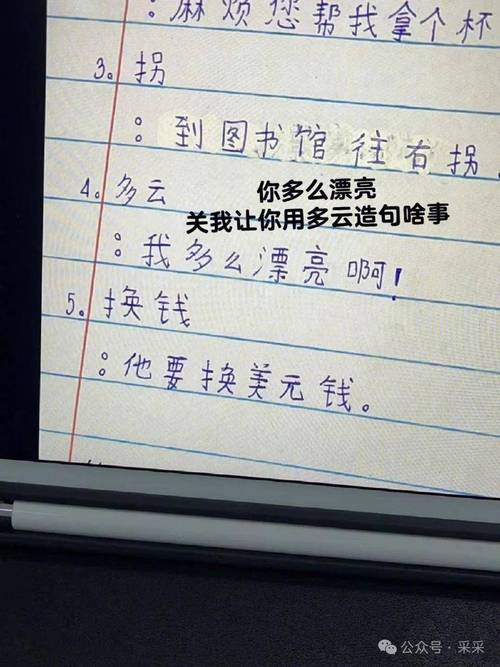 ：麻烦您帮我拿个杯
3. 拐
：到图书馆往右拐
4. 多云
你多么漂亮
关我让你用多云造句啥事
：我多么漂亮啊！
5. 换钱
：他要换美元钱。
公众号·采采